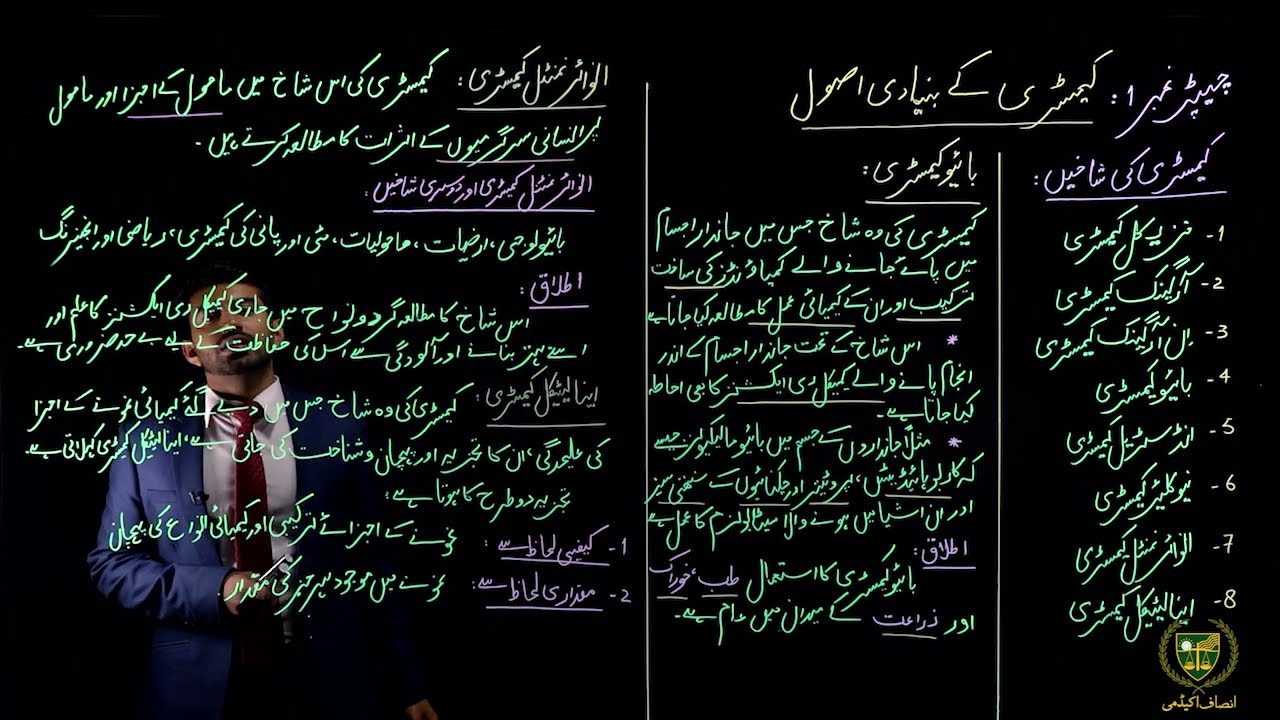 چیپٹر نمبر 1: کیمسٹری کے بنیادی اصول
کیمسٹری کی شاخیں:
1- فزیکل کیمسٹری
2- آرگینک کیمسٹری
3- ان آرگینک کیمسٹری
4- بائیو کیمسٹری
5- انڈسٹریل کیمسٹری
6- نیوکلیئر کیمسٹری
7- انوائرنمنٹل کیمسٹری
8- اینالیٹیکل کیمسٹری
بائیو کیمسٹری:
کیمسٹری کی وہ شاخ جس میں جاندار اجسام
میں پائے جانے والے کمپاؤنڈز کی ساخت
ترکیب اور ان کے کیمیائی عمل کا مطالعہ کیا جاتا ہے
* اس شاخ کے تحت جاندار اجسام کے اندر
انجام پانے والے کیمیکل ری ایکشنز کا بھی احاطہ
کیا جاتا ہے۔
* مثلاً جانداروں کے جسم میں بائیو مالیکیولز جیسے
کہ کاربوہائیڈریٹس، پروٹینز اور چکنائیوں کے سنتھی سیز
اور ان اشیا میں ہونے والا میٹابولزم کا عمل ہے
اطلاق:
بائیو کیمسٹری کا استعمال طب، خوراک
اور زراعت کے میدان میں عام ہے۔
انوائرنمنٹل کیمسٹری: کیمسٹری کی اس شاخ میں ماحول کے اجزا اور ماحول
پر انسانی سرگرمیوں کے اثرات کا مطالعہ کرتے ہیں۔
انوائرنمنٹل کیمسٹری اور دوسری شاخیں:
بائیولوجی، ارضیات، ماحولیات، مٹی اور پانی کی کیمسٹری، ریاضی اور انجینرنگ
اطلاق:
اس شاخ کا مطالعہ گردونواح میں جاری کیمیکل ری ایکشنز کا علم اور
اسے بہتر بنانے اور آلودگی سے اس کی حفاظت کے لیے بے حد ضروری ہے۔
اینالیٹیکل کیمسٹری: کیمسٹری کی وہ شاخ جس میں دیے گئے کیمیائی نمونے کے اجزا
کی علیحدگی، ان کا تجزیہ اور پہچان و شناخت کی جاتی ہے، اینالیٹیکل کیمسٹری کہلاتی ہے۔
تجزیہ دو طرح کا ہوتا ہے:
1- کیفیتی لحاظ سے: نمونے کے اجزائے ترکیبی اور کیمیائی انواع کی پہچان
2- مقداری لحاظ سے: نمونے میں موجود ہر جز کی مقدار۔
انصاف اکیڈمی